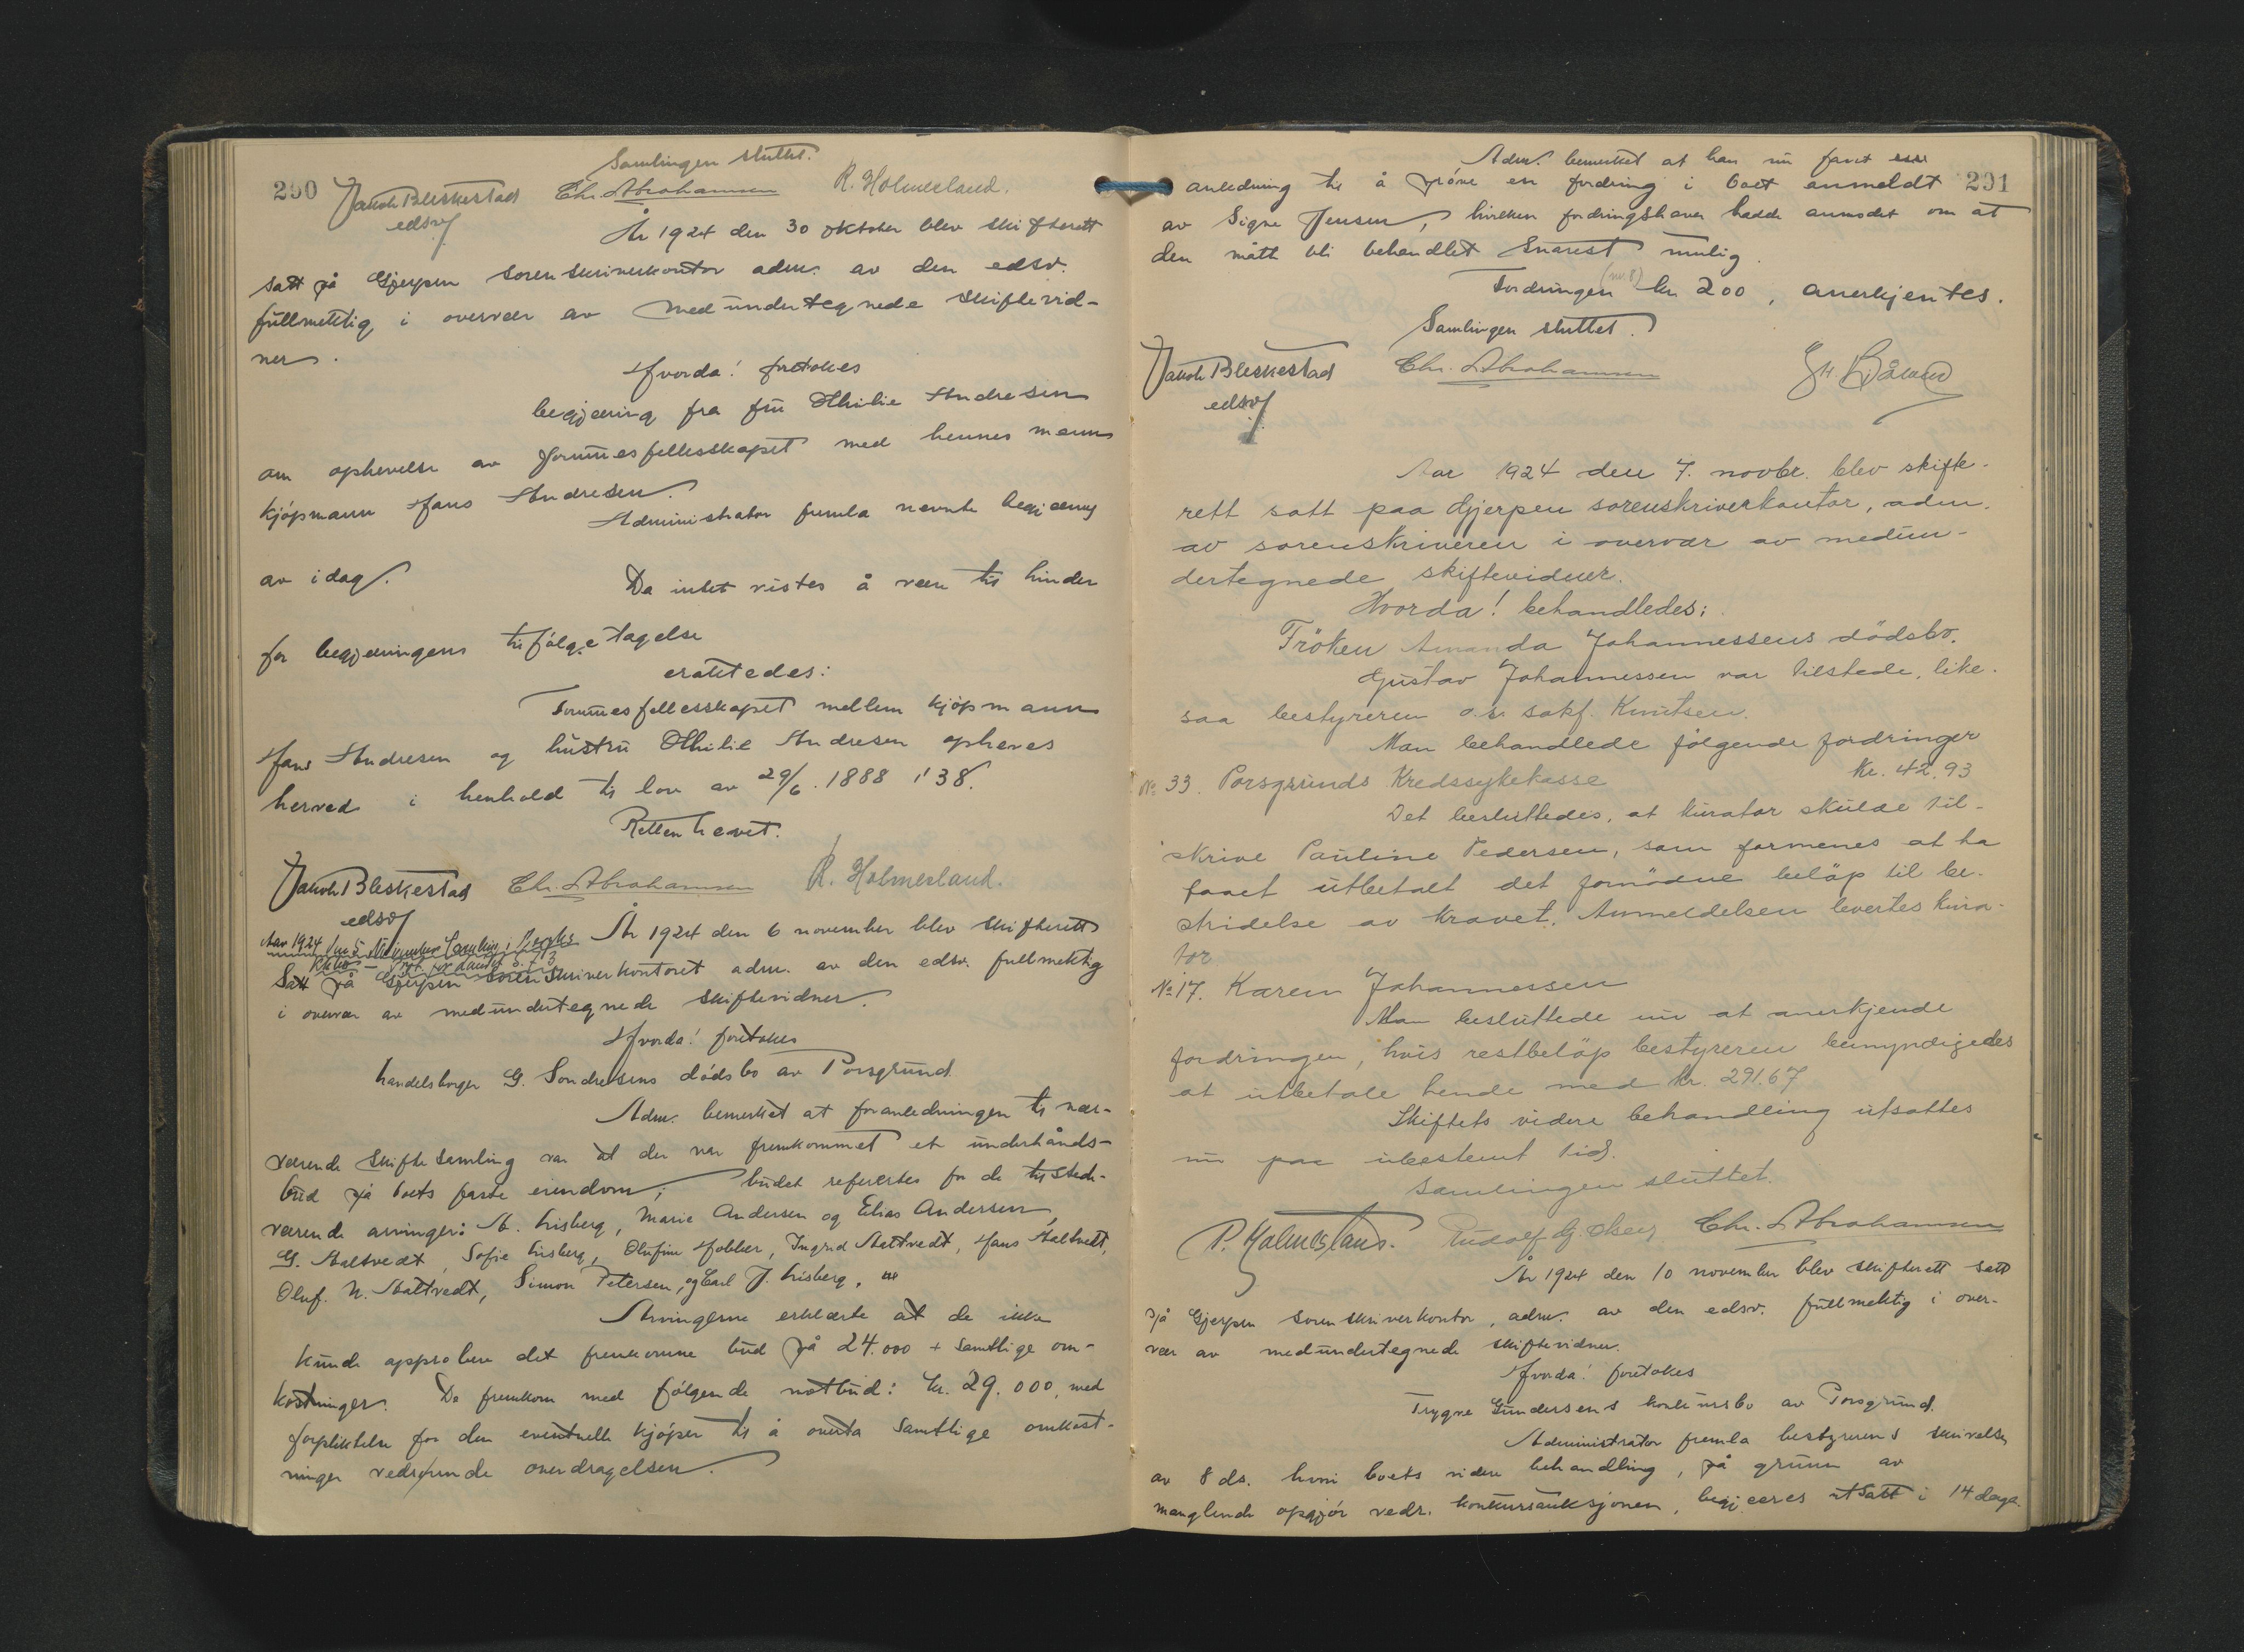 290
Samlingen sluttet.
Jacob Bleskestad Chr. Abrahamsen R. Holmesland.
edsv.f
År 1924 den 30 oktober blev skifterett
satt på Gjerpen sorenskriverkontor adm. av den edsv.
fullmektig i overvær av medundertegnede skiftevid-
ner.
Hvorda! foretokes
begjæring fra fru Othilie Andresen
om ophevelse av formuesfellesskapet med hennes mann
kjøpmann Hans Andresen.
Administrator fremla nevnte begjæring
av idag.
Da intet vistes å være til hinder
for begjæringens tilfølgetagelse
eraktedes:
Formuesfellesskapet mellem kjøpmann
Hans Andresen og hustru Othilie Andresen opheves
herved i henhold til lov av 29/6. 1888 § 38.
Retten hevet.
Jacob Bleskestad Chr. Abrahamsen R. Holmesland.
edsv.f
År 1924 den 6 november blev skifterett
Aar 1924 den 5 November Samling i
satt på Gjerpen sorenskriverkontoret adm. av den edsv. fullmektig
i overvær av medundertegnede skiftevidner.
Hvorda! foretokes
handelsborger G. Sondresens dødsbo av Porsgrund.
Adm. bemerket at foranledningen til nær-
værende skiftesamling var at der var fremkommet et underhånds-
bud på boets faste eiendom; budet refertes for de tilstede-
værende arvinger: A. Lisberg, Marie Andersen og Elias Andersen,
G. Aaltvedt, Sofie Lisberg, Olufine Hobber, Ingrid Aaltvedt, Hans Aaltvedt,
Oluf. N. Aaltvedt, Simon Petersen, og Carl J. Lisberg.
Arvingerne erklærte at de ikke
kunde approbere det fremkomne bud på 24.000 + samtlige om-
kostninger. De fremkom med følgende motbud: kr. 29.000, med
forpliktelse for den eventuelle kjøper til å overta samtlige omkost-
ninger vedrørende overdragelsen.
291
Adm. bemerket at han nu favt
anledning til å prøve en fordring i boet anmeldt
av Signe Jensen, hvilken fordringshaver hadde anmodet om at
den måtte bli behandlet snarest mulig.
Fordringen (nr. 8) kr. 200, anerkjentes.
Samlingen sluttet.
Jacob Bleskestad Chr. Abrahamsen
edsv.f
Aar 1924 den 7. novbr. blev skifte-
rett satt paa Gjerpen sorenskriverkontor, adm.
av sorenskriveren i overvær av medun-
dertegnede skiftevidner.
Hvorda! behandledes:
Frøken Amanda Johannessens dødsbo.
Gustav Johannessen var tilstede, like-
saa bestyreren o.r. sakf. Knutsen.
Man behandlede følgende fordringer
No 33. Porsgrunds Kredssykekasse kr. 42,93
Det besluttedes, at kurator skulde til-
skrive Pauline Pedersen, som formenes at ha
faaet utbetalt det fornødne beløp til be-
stridelse av kravet. Anmeldelsen levertes kura-
tor
No 17. Karen Johannessen
Man besluttede nu at anerkjende
fordringen, hvis restbeløp bestyreren bemyndigedes
at utbetale hende med kr. 291.67
Skiftets videre behandling utsattes
nu paa ubestemt tid.
Samlingen sluttet.
P. Holmesland. Rudolf G. Olsen Chr. Abrahamsen
År 1924 den 10 november blev skifterett satt
på Gjerpen sorenskriverkontor, adm. av den edsv. fullmektig i over-
vær av medundertegnede skiftevidner.
Hvorda! foretokes
Trygve Gundersens konkursbo av Porsgrund.
Administrator fremla bestyrerens skrivelse
av 8 ds. hvori boets videre behandling, på grunn av
manglende opgjør vedr. konkursauksjonen, begjæres utsatt i 14 dage.